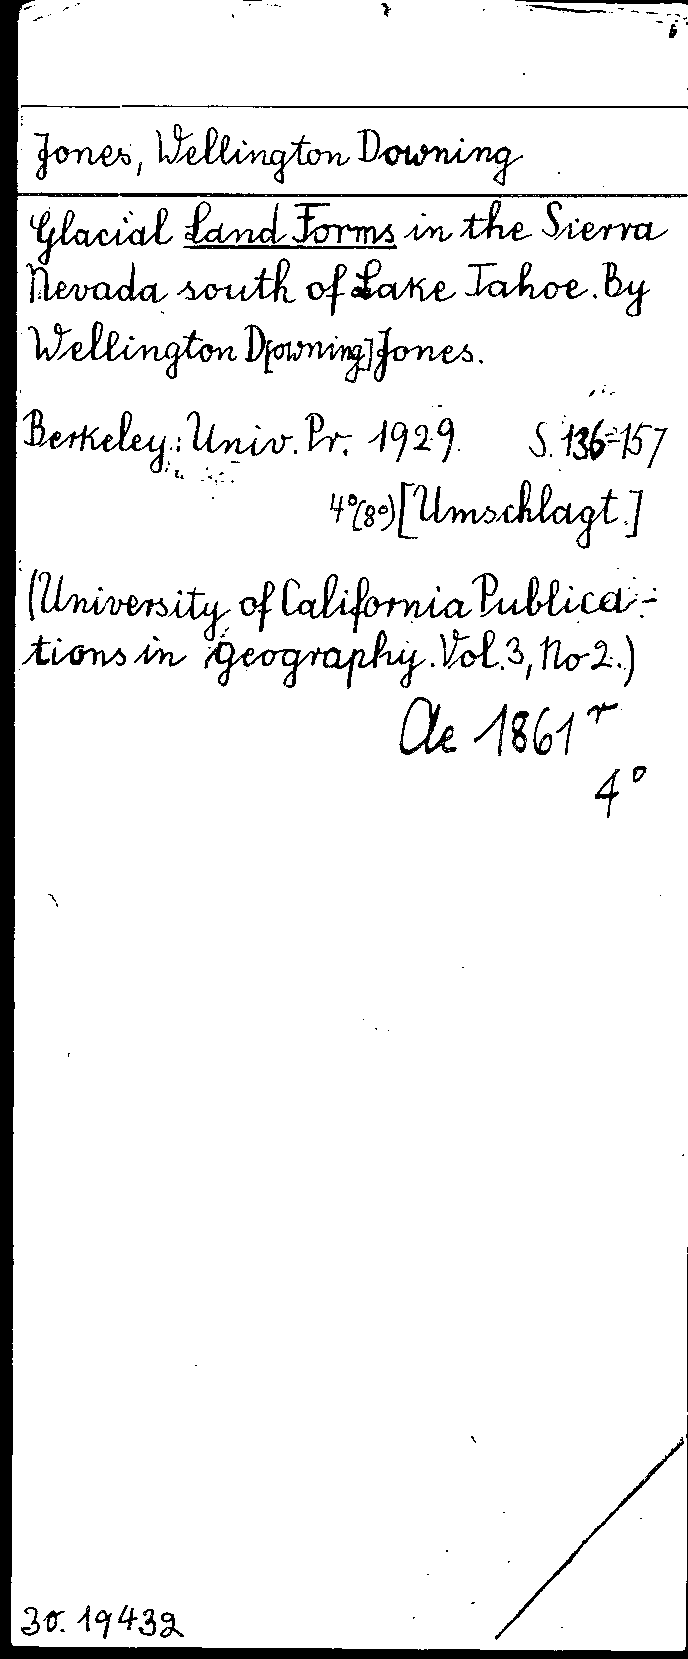 Jones, Wellington Downing
Glacial Land Forms in the Sierra
Nevada south of Lake Tahoe. By
Wellington D[owning] Jones.
Berkeley: Univ. Pr. 1929. S. 136-157
4°(8°) [Umschlagt.]
(University of California Publica-
tions in geography. Vol. 3, No 2.)
4°
30. 19432